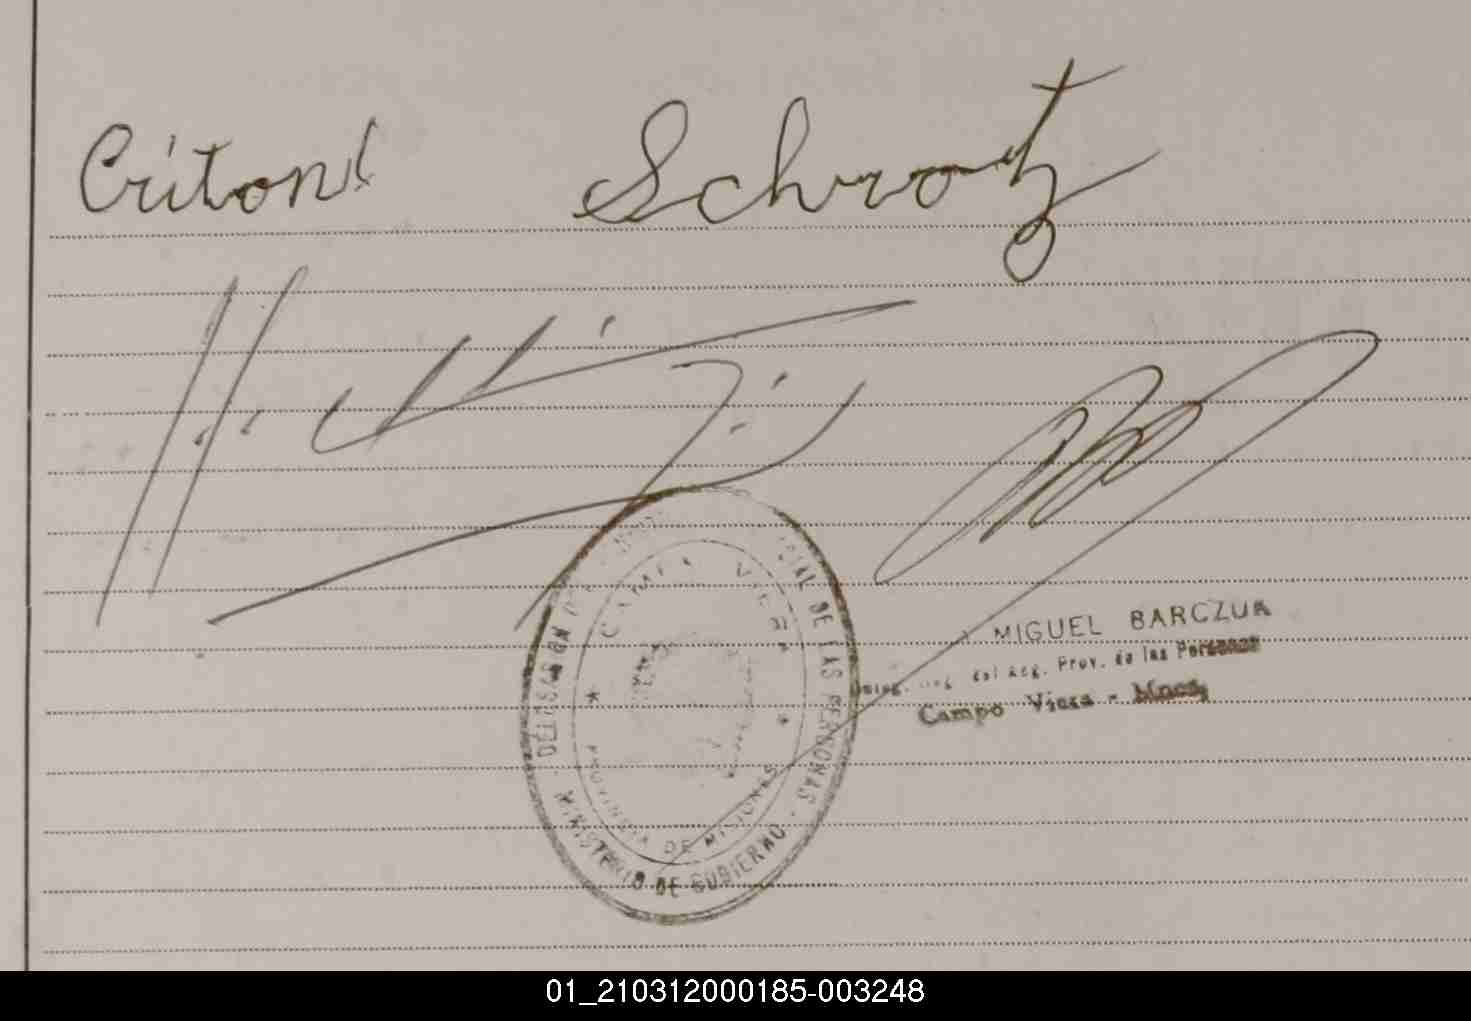 Critoni Schrotz
DELEGACION DEL REGISTRO PROVINCIAL DE LAS PERSONAS
CAMPO VIERA
PROVINCIA DE MISIONES
MINISTERIO DE GOBIERNO
MIGUEL BARCZUK
del Reg. Prov. de las Personas
Campo Viera - Mnes.
01_210312000185-003248